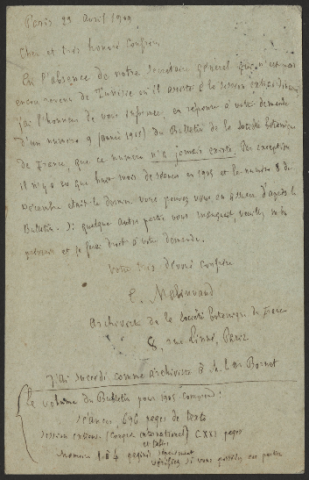 Paris 29 avril 1909
Cher et très honoré Confrère
En l'absence de notre secrétaire général qui n'est pas
encore revenu de Tunisie où il assiste à la session extraordinaire
j'ai l'honneur de vous informer, en réponse à votre demande
d'un numéro 9 (année 1905) du Bulletin de la Société botanique
de France, que ce numéro n'a jamais existé. Par exception
il n'y a eu que huit mois de séances en 1905 et le numéro 8 de
Décembre était le dernier vous pouvez vous en assurer d'après le
Bulletin. Si quelque autre partie vous manquait, veuillez m'en
prévenir et je ferai droit à votre demande.
Votre très dévoué Confrère
E. Malinvaud
Archiviste de la Société botanique de France
8, rue Linné, Paris
J'ai succédé comme archiviste à M. le Dr Bornet
Le volume du Bulletin pour 1905 comprend:
Séances 696 pages de texte
session extraord. (Congrès international) CXXI pages
et table
Numéros 1 à 4
vérifiez si vous possédez ces parties